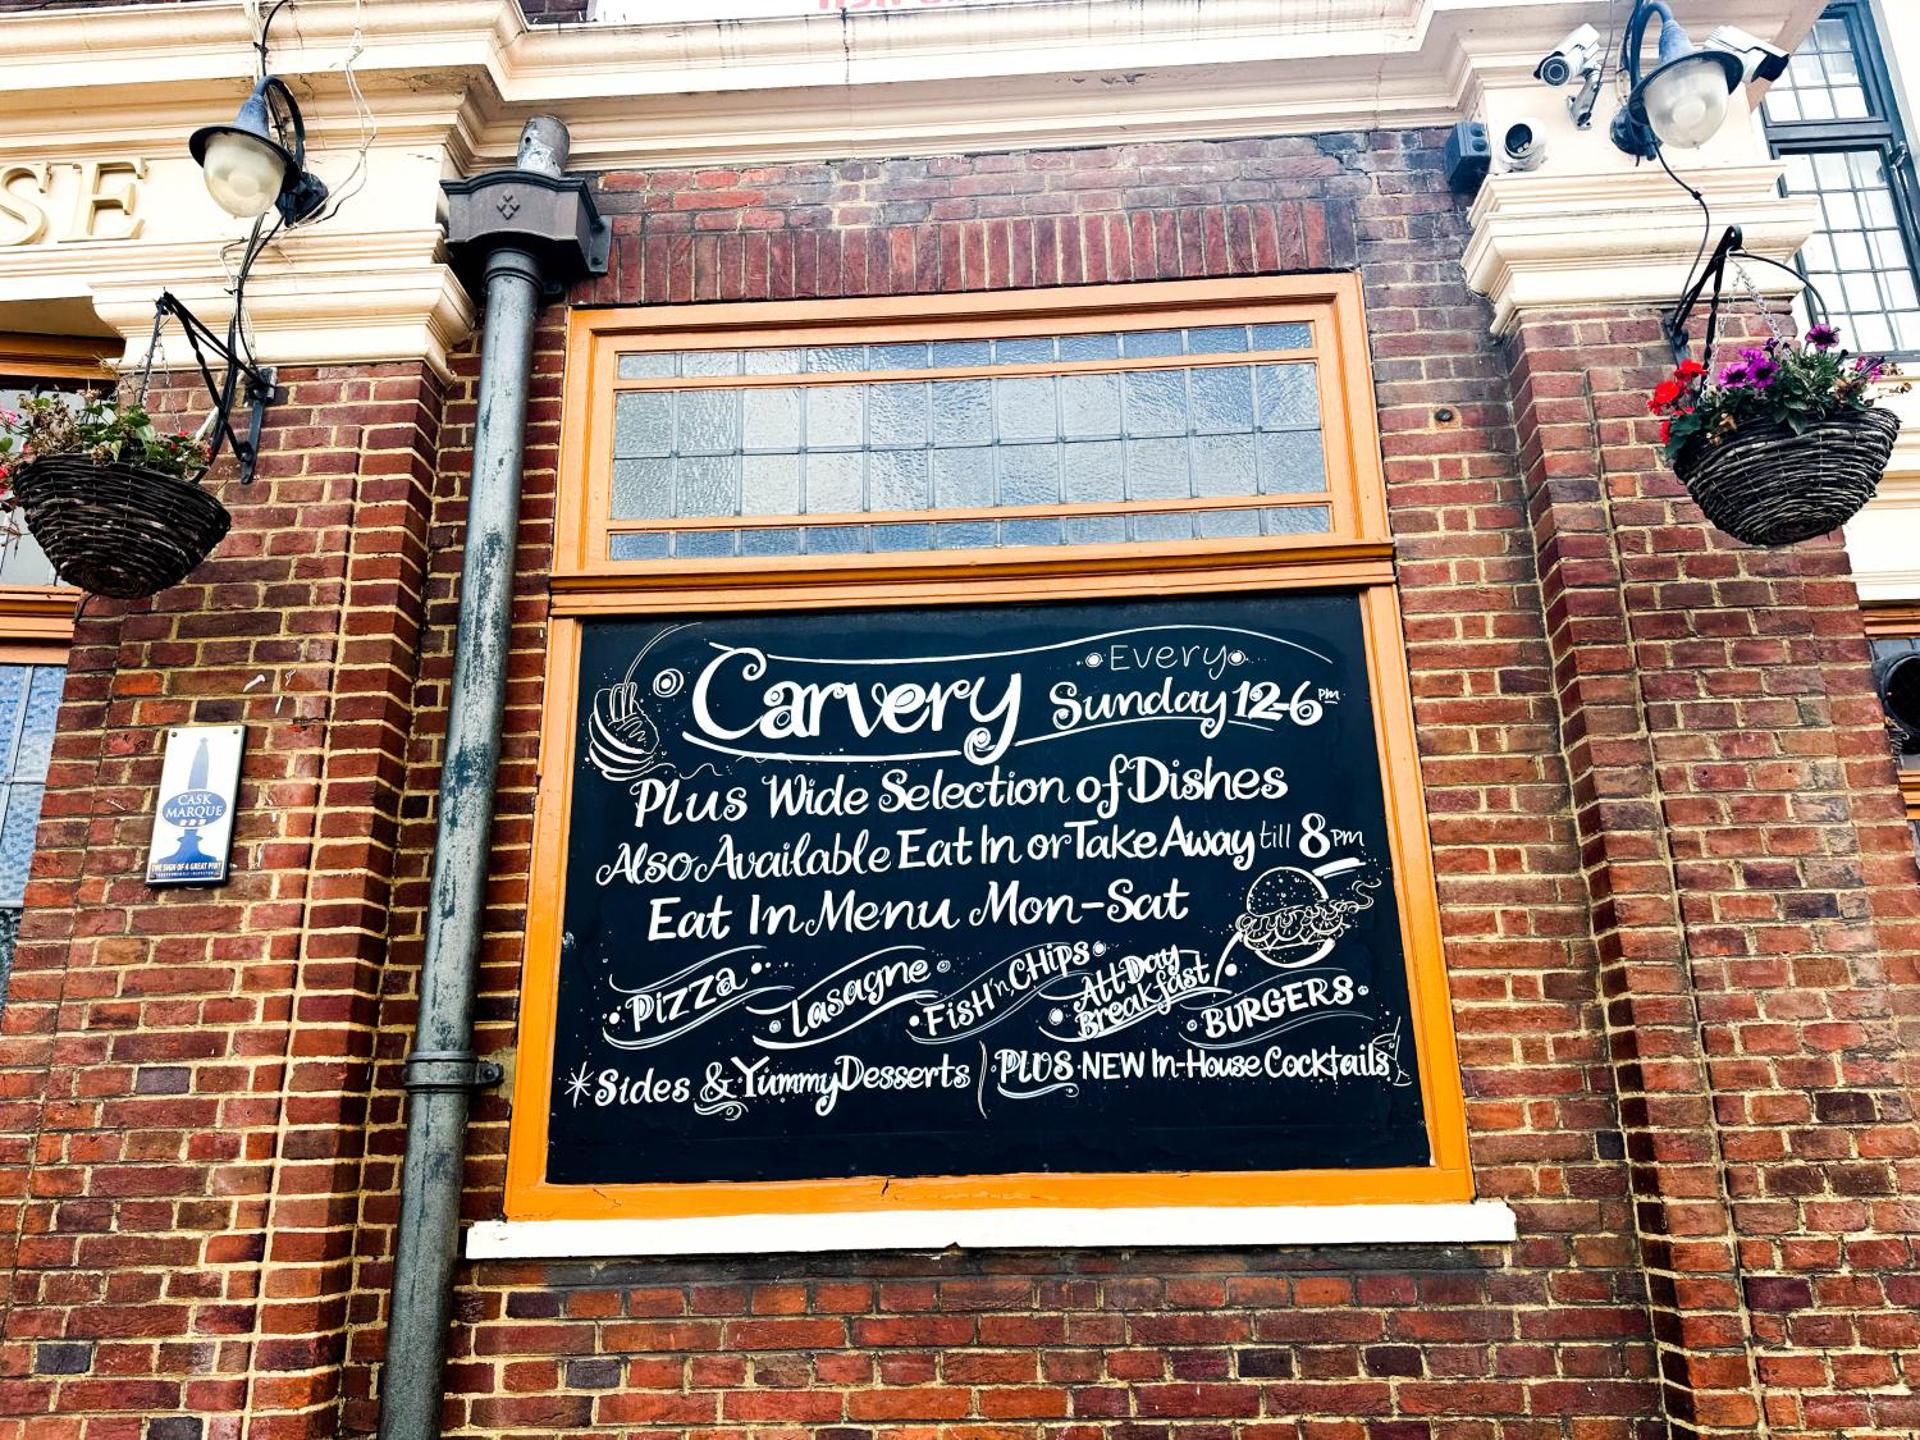 SE
CASK
MARQUE
THE SIGN OF A GREAT PINT
Carvery
Every
Sunday 12-6 pm
Plus Wide Selection of Dishes
Also Available Eat In or Take Away till 8PM
Eat In Menu Mon-Sat
Pizza
Lasagne
Fish 'n' Chips
All Day
Breakfast
BURGERS
*Sides & Yummy Desserts
PLUS NEW In-House Cocktails